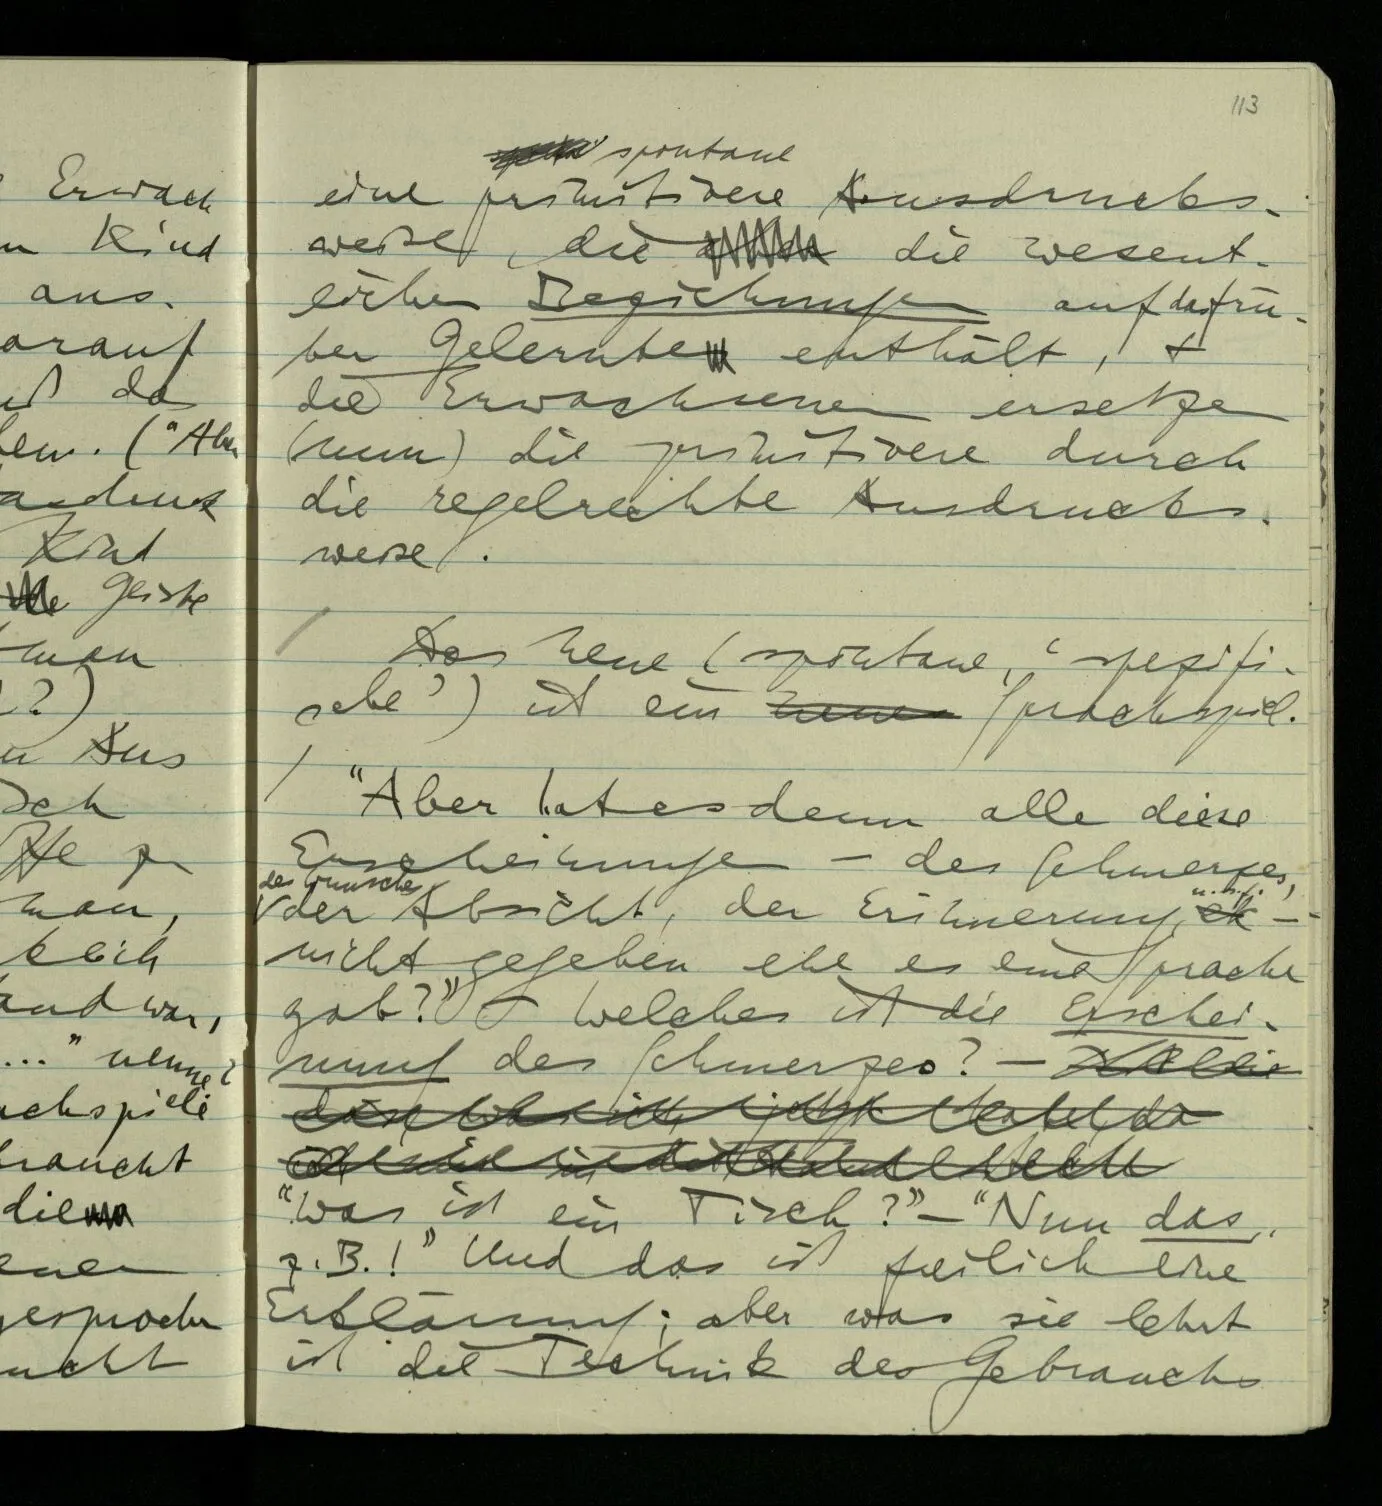 113
Erwach
n Kind
aus.
arauf
da
ben. ("Aber
Kind
Geiste
man
?)
n Aus
sch
man,
bloß ich
and war,
..." nenne?
achspiele
braucht
die
enen
gesprochen
ucht
spontane
eine primitivere Ausdrucks-
weise, die die wesent-
lichen Beziehungen auf das frü-
her Gelernte enthält, +
die Erwachsenen ersetzen
(nun) die primitivere durch
die regelrechte Ausdrucks-
weise.
Das Neue (spontane, 'spezifi-
sche') ist ein neues Sprachspiel.
"Aber hat es denn alle diese
Erscheinungen – des Schmerzes,
des Wunsches u.s.f.
der Absicht, der Erinnerung, etc –
nicht gegeben ehe es eine Sprache
gab?" – Welches ist die Erschei-
nung des Schmerzes? –
"Was ist ein Tisch?" – "Nun das,
z.B.!" Und das ist freilich eine
Erklärung; aber was sie lehrt
ist die Technik des Gebrauchs